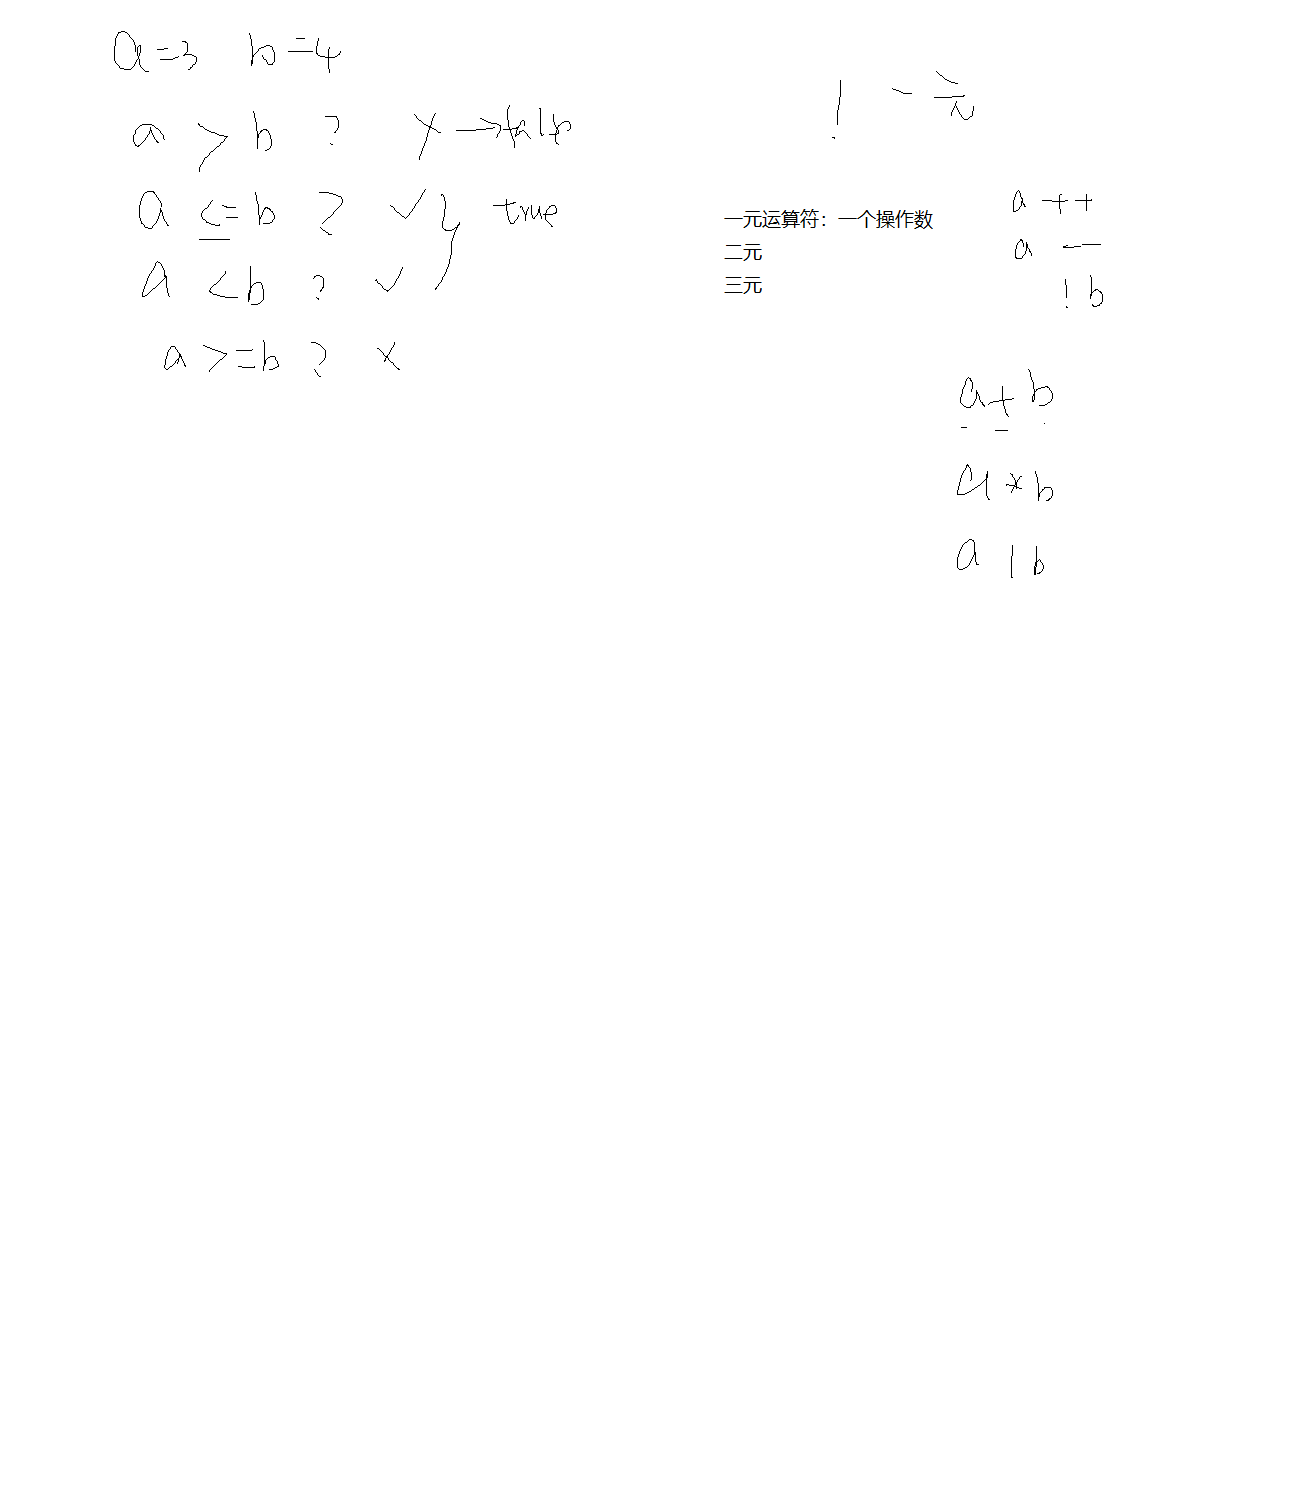 a=3 b=4
a > b ? × →false
a <= b ? ✓ } true
a < b ? ✓
a >= b ? ×
! 一元
一元运算符：一个操作数
二元
三元
a ++
a --
! b
a + b
a * b
a | b